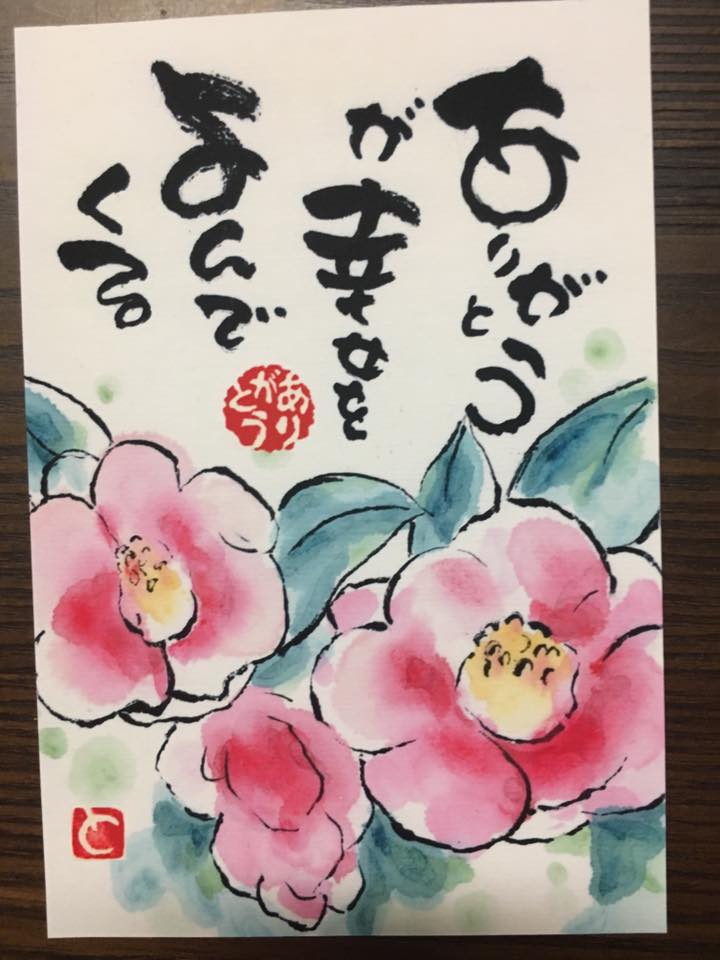 ありがとう
が幸せを
よんで
くる
ありがとう
と